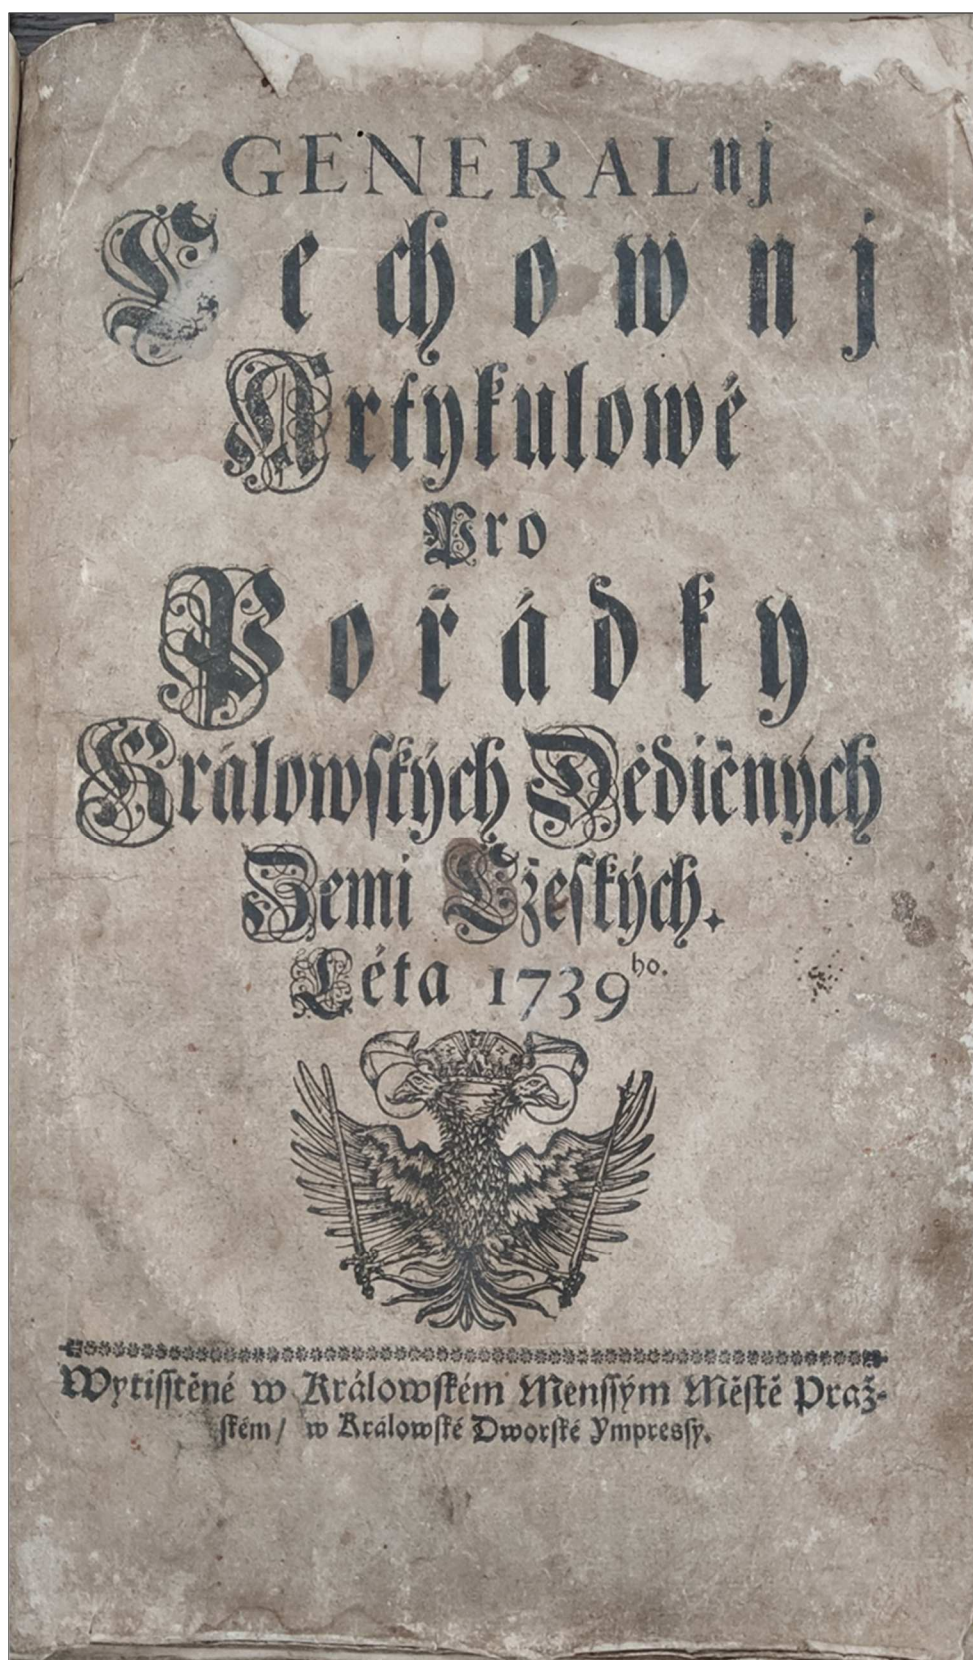 GENERALnj
Cechownj
Artykulowé
Pro
Pořádky
Králowských Dědičných
Zemi Cžeských.
Léta 1739ho.
Wytisstěné w Králowském Menssým Městě Praž-
ském/ w Králowské Dworské Ympressy.